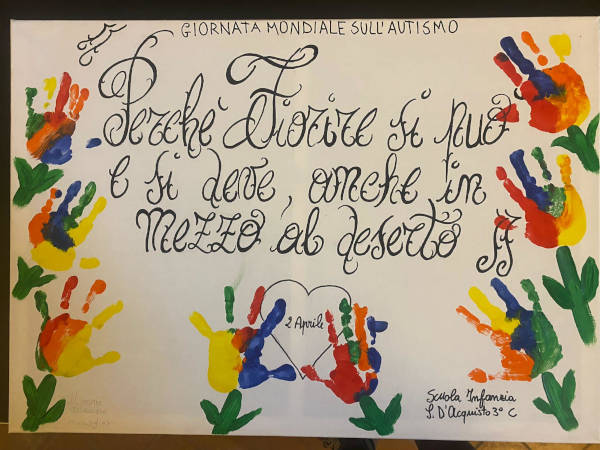 GIORNATA MONDIALE SULL'AUTISMO
Perchè Fiorire si può
e si deve, anche in
mezzo al deserto
2 Aprile
Scuola Infanzia
S. D'Acquisto 3° C